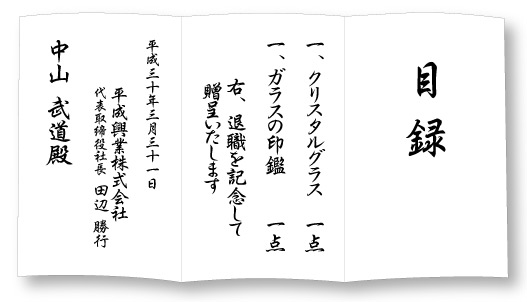 目録
一、クリスタルグラス　一点
一、ガラスの印鑑　一点
右、退職を記念して
贈呈いたします
平成三十年三月三十一日
平成興業株式会社
代表取締役社長　田辺　勝行
中山　武道殿